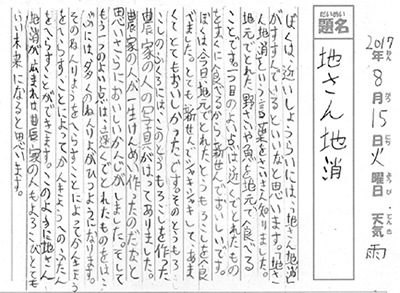 2017年8月15日火曜日 天気雨
だいめい
題名
地さん地消
ぼくは、近いしょうらいには、地さん地消
がすすんでいるといいなと思います。地さ
ん地消という言葉をさいきん知りました。
地元でとれた野さいや魚を地元で食べる
ことです。一つ目のよい点は近くでとれたもの
をすぐに食べるから新せんでおいしいです。
ぼくは今日、地元でとれたとうもろこしを食
べました。とても新せんでシャキシャキして、あま
くてとてもおいしかったです。そのとうもろこ
しのふくろにはこのとうもろこしを作った
農家の人の写真がはってありました。
農家の人が一生けんめい作ったのだなと
思いさらにおいしいかんじがしました。そして
もう一つのよい点は、遠くでとれたものをはこ
ぶには、多くのねんりょうがひつようになります。
そのねんりょうをへらすことによってか
をへらすことによってかんきょうへのふたん
をへらすことができます。このように地さん
地消が広まれば農家の人もよろこびとても
いい未来になると思います。